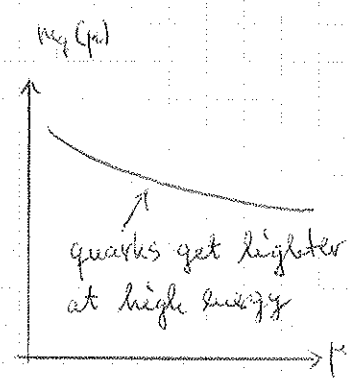 m_q(μ)
quarks get lighter
at high energy
μ